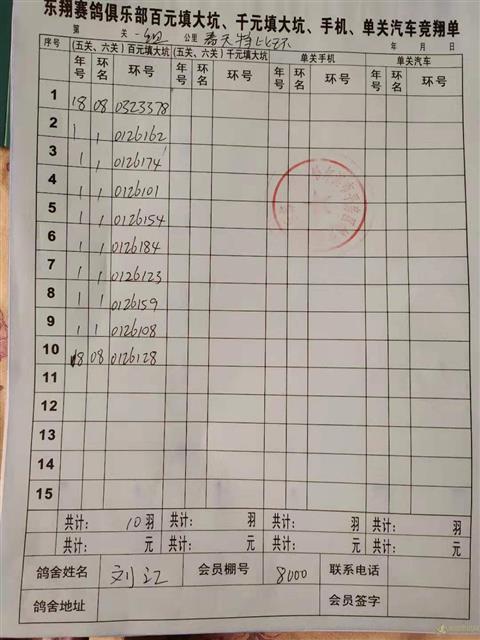 东翔赛鸽俱乐部百元填大坑、千元填大坑、手机、单关汽车竞翔单
第 关 一组 公里 春天特比环 年 月 日
序号 (五关、六关)百元填大坑 (五关、六关)千元填大坑 单关手机 单关汽车
年号 环名 环号 年号 环名 环号 年号 环名 环号 年号 环名 环号
1 18 08 0323378
2 \ \ 0126162
3 \ \ 0126174
4 \ \ 0126101
5 \ \ 0126154
6 \ \ 0126184
7 \ \ 0126123
8 \ \ 0126159
9 \ \ 0126108
10 18 08 0126128
11
12
13
14
15
共计: 10羽 共计: 羽 共计: 羽 共计: 羽
共计: 元 共计: 元 共计: 元 共计: 元
鸽舍姓名 刘江 会员棚号 8000 联系电话
鸽舍地址 会员签字